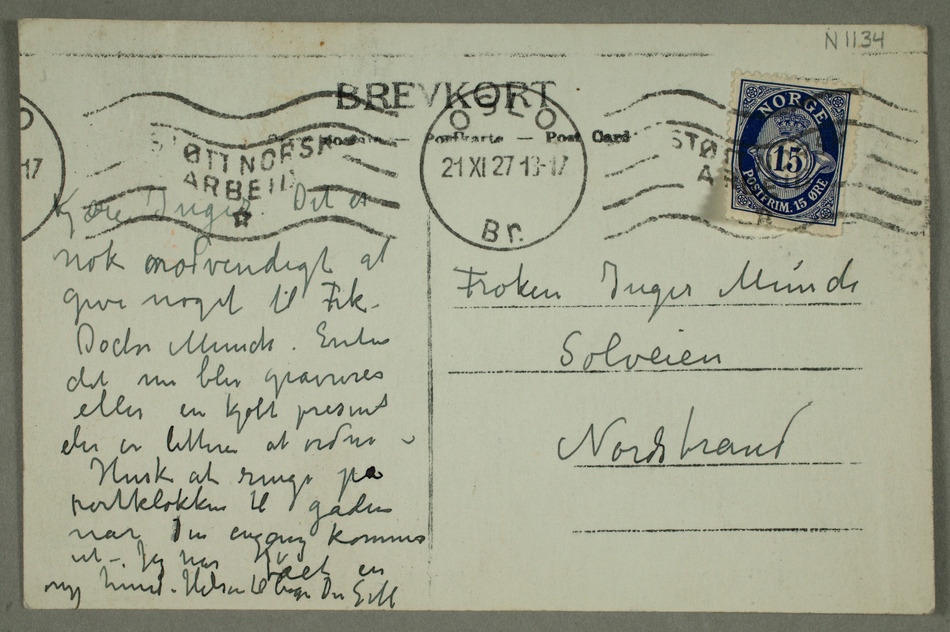 N 1134
BREVKORT
Postkarte — Post Card
OSLO
21 XI 27 13-17
Br.
17
STØTT NORSK
ARBEID
STØ
A
NORGE
15
POSTFRIM. 15 ØRE
Kjære Inger. Det er
nok nødvendigt at
give noget til Frk.
Doctor Munch. Enten
det nu blir graveres
eller en kjøbt present
er lettere at ordne –
Husk at ringe på
portklokken til gaden
når Du engang kommer
ut –. Jeg har fået en
ny hund – Hilsen til begge Din
Frøken Inger Munch
Solveien
Nordstrand